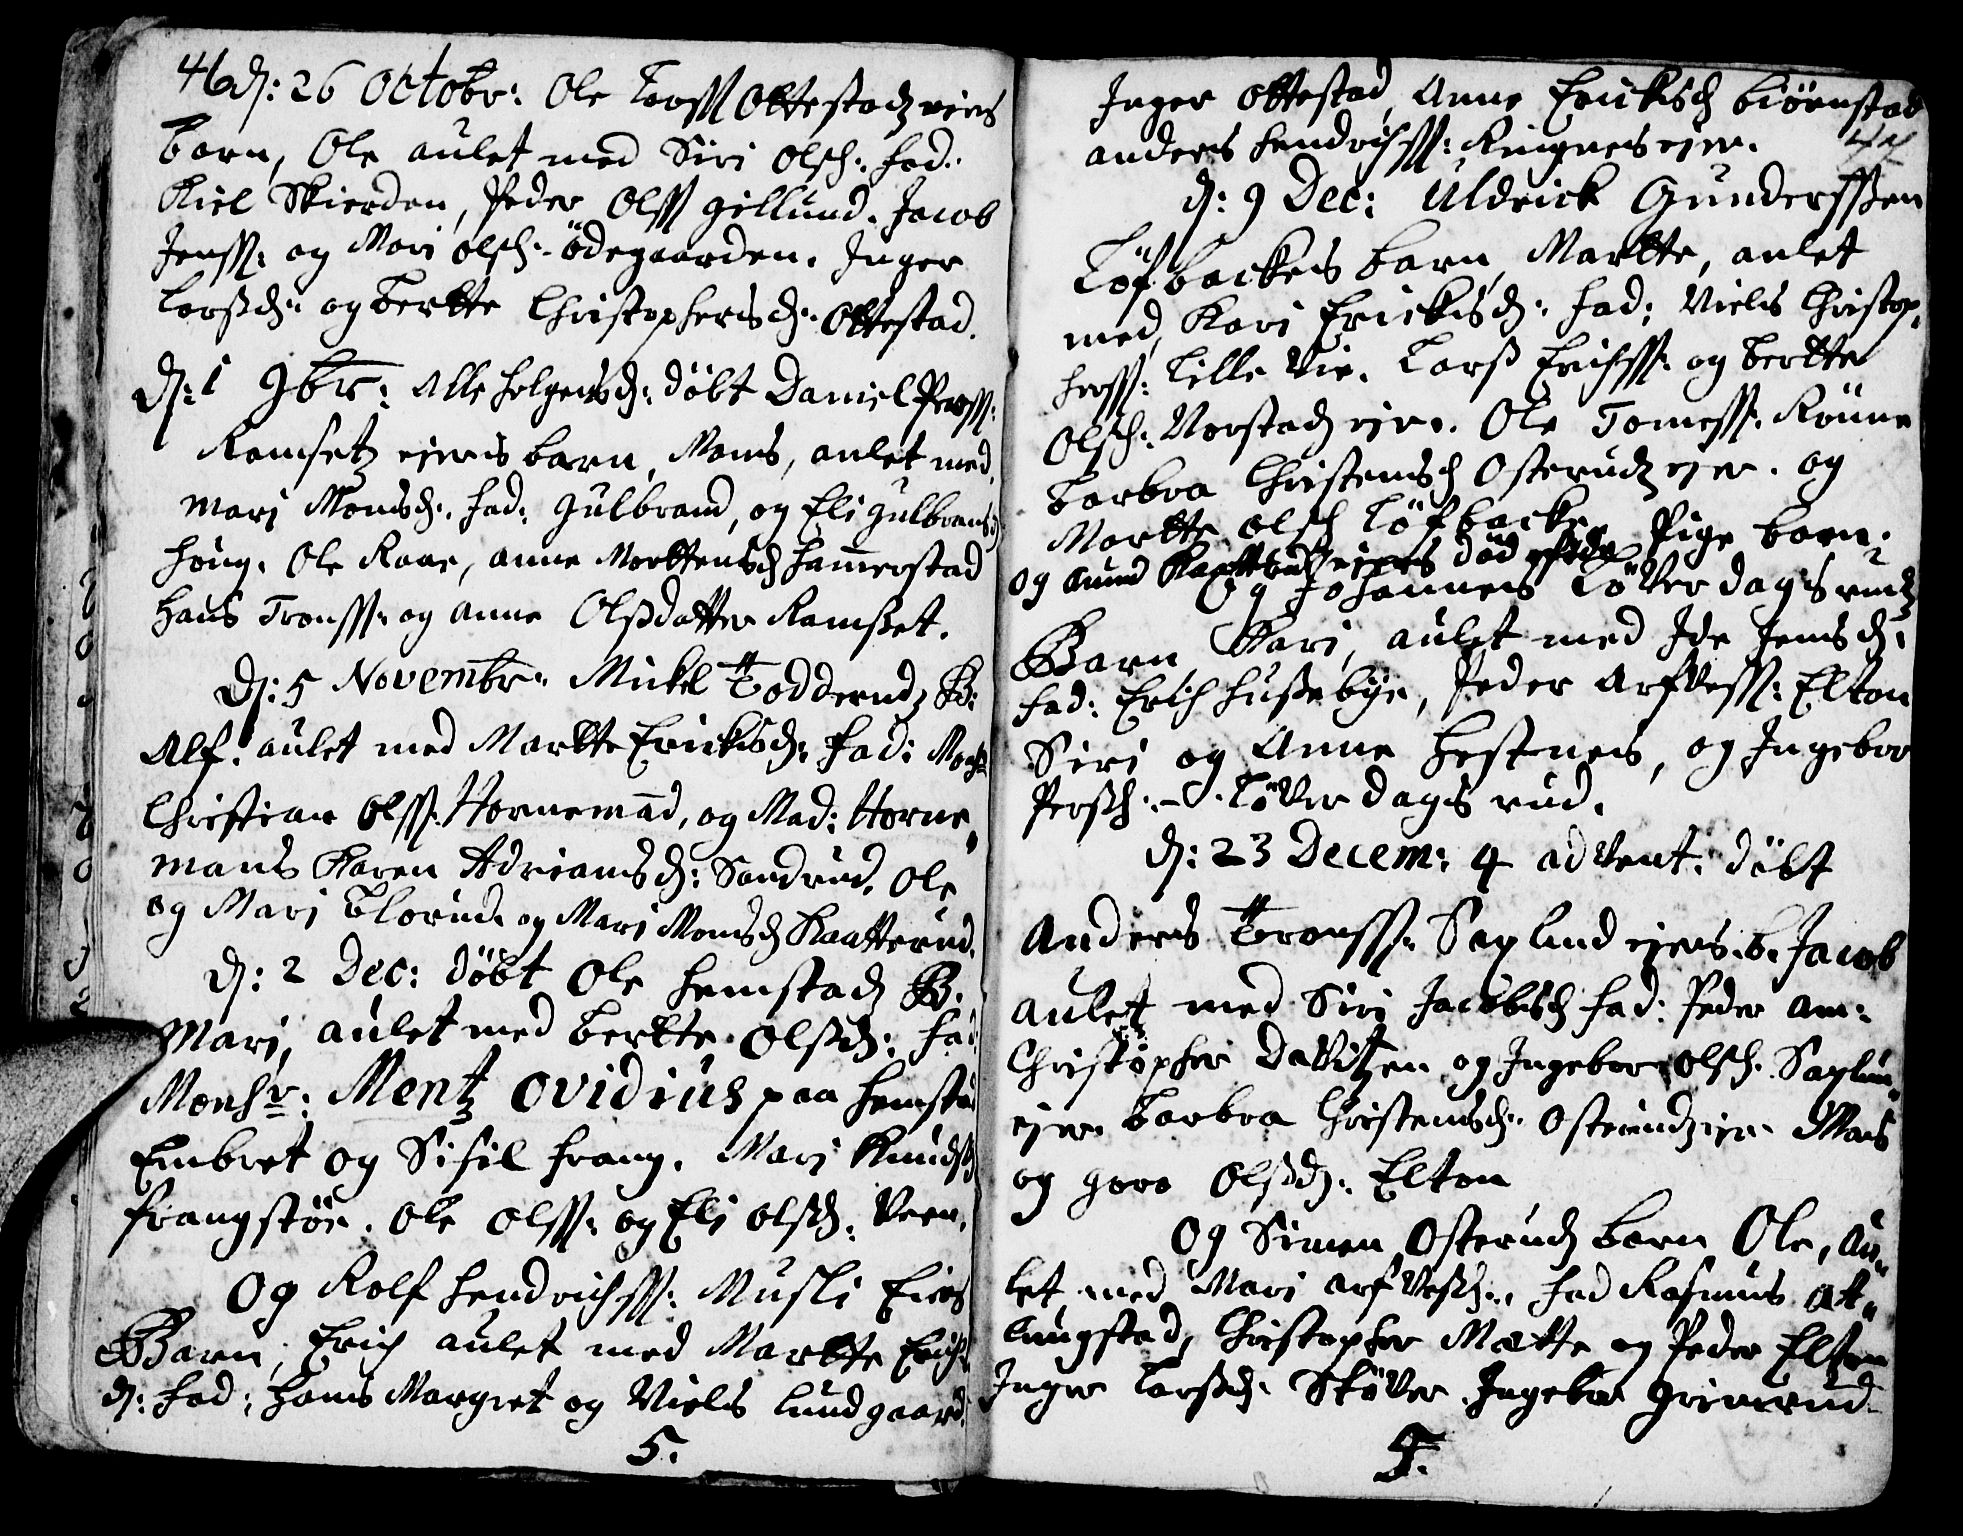 46 d: 26 Octobr: Ole Larss Ottestadz eiers
barn, Ole aulet med Siri Olsd: fad:
Kiel Skierden, Peder Olss Gillund. Jacob
Jenss: og Mari Olsd: Ödegaarden. Inger
Larssd: og Bertte Christophersd: Ottestad.
D: 1 9br: Alle helgensd: döbt Daniel Perss:
Ramsetz eiers barn, Mons, aulet med
Mari Monsd: fad: Gulbrand, og Eli Gulbransd
höug. Ole Raae, Anne Morttensd hamerstad
Hans Tronss: og Anne Olssdatter Ramsset.
D: 5 Novembr: Mickel Todderudz B:
Alf. aulet med Martte Ericksd: fad: Monsr
Christian Olss: Hornemand, og Mad: Horne
mans Karen Adriansd: Sandrud, Ole
og Mari Blorud. og Mari Monsd Kaatterud.
D: 2 Dec: döbt Ole hemstadz B.
Mari, aulet med Bertte Olssd: fad
Monsr: Mentz Ovidius paa hemstad
Embret og Sisil frang. Mari Knudsd
frangstöe. Ole Olss: og Eli Olsd: Veen.
Og Rolf hendrichss: Musli Eiers
Barn, Erich aulet med Martte Erichs
d: fad: Hans Margret og Niels Lundgaard.
5.
Inger Ottestad, Anne Ericksd biörnstad
Anders hendrichss: Ringnes eier.
47
D: 9 Dec: Uldrick Gunderssen
Löfbackens barn, Martte, aulet
med, Kari Ericksd: fad: Niels Christop
herss: Lille Vie. Larss Erichss: og Bertte
Olsd: Norstadz eier. Ole Tomess: Rönne
Barbra Christensd Osterudz eier. og
Martte Olsd Löfbacke
og Amund Kaatterudz eiers död födde Pige barn.
Og Johannes Löverdagsrudz
Barn Kari, aulet med Ide Jensd:
fad: Erich hussebye, Peder Arfvess: Elton
Siri og Anne Hestnes, og Ingebor
Perssd: Löverdags rud.
D: 23 Decem: 4 advent: döbt
Anders Tronss: Saxlund eiers b. Jacob
aulet med Siri Jacobsd fad: Peder Am:
Christopher Davitzen og Ingebor Olsd. Saxlun
eier. Barbra Christensd: Osterudz eier Mons
og Goro Olssd: Elton
Og Simen Osterudz barn Ole, Au
let med Mari Arfvessd: fad Rasmus At
lungstad, Christopher Mætte og Peder Elton
Inger Larssd: Sköver. Ingebor Grimerud
5.